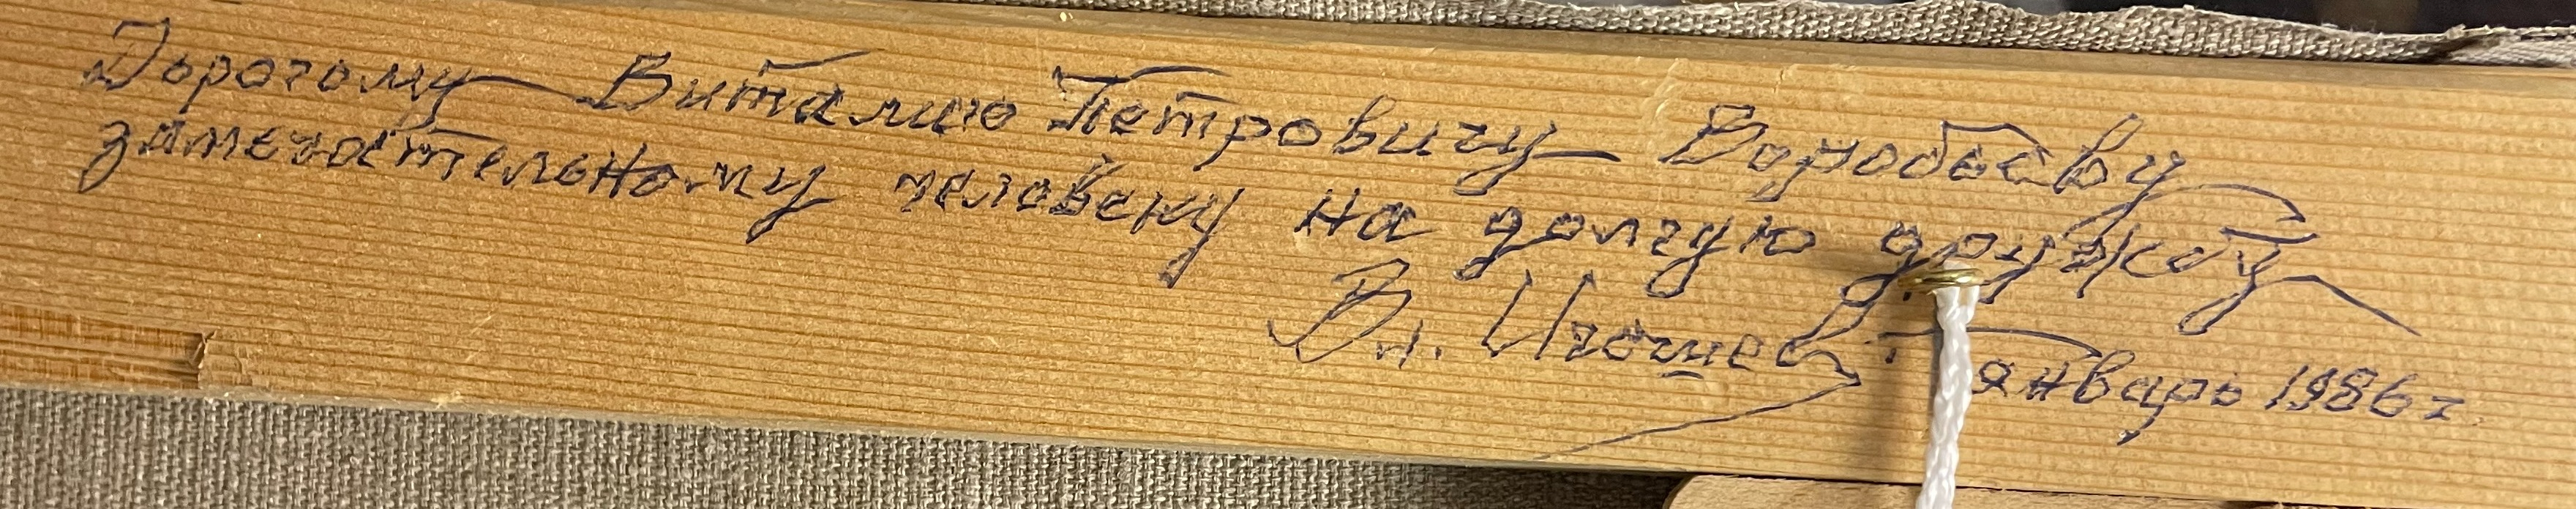 Дорогому Виталию Петровичу Воробьеву
замечательному человеку на долгую дружбу
Вл. Игошев январь 1986 г.